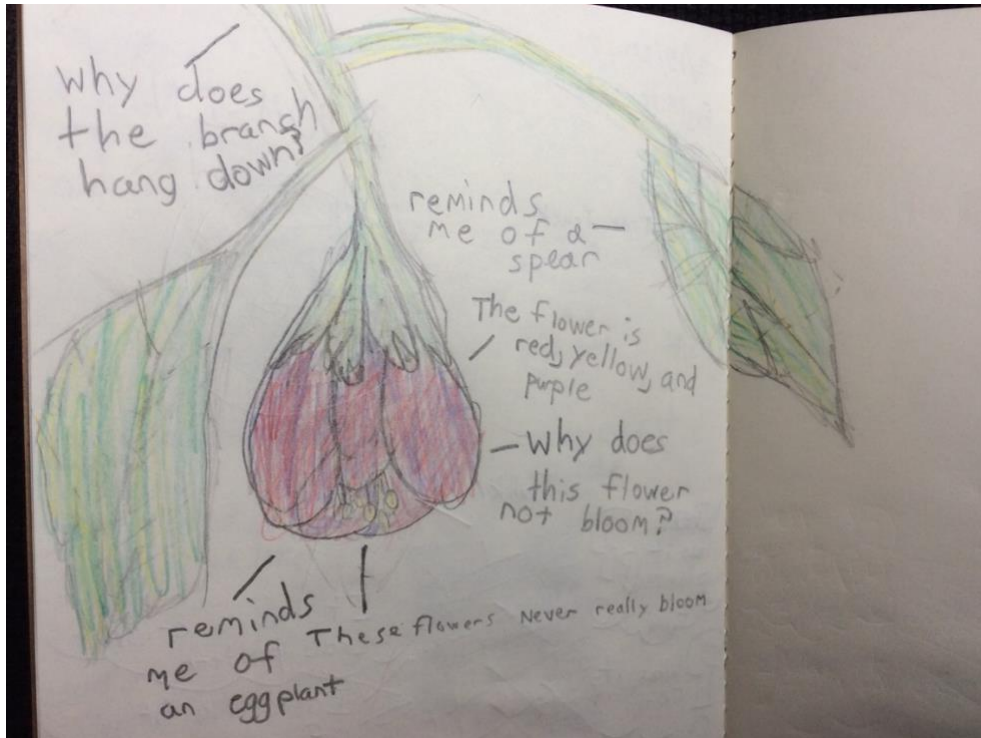 why does
the branch
hang down?
reminds
me of a
spear
The flower is
red, yellow, and
purple
Why does
this flower
not bloom?
reminds
me of
an eggplant
These flowers Never really bloom